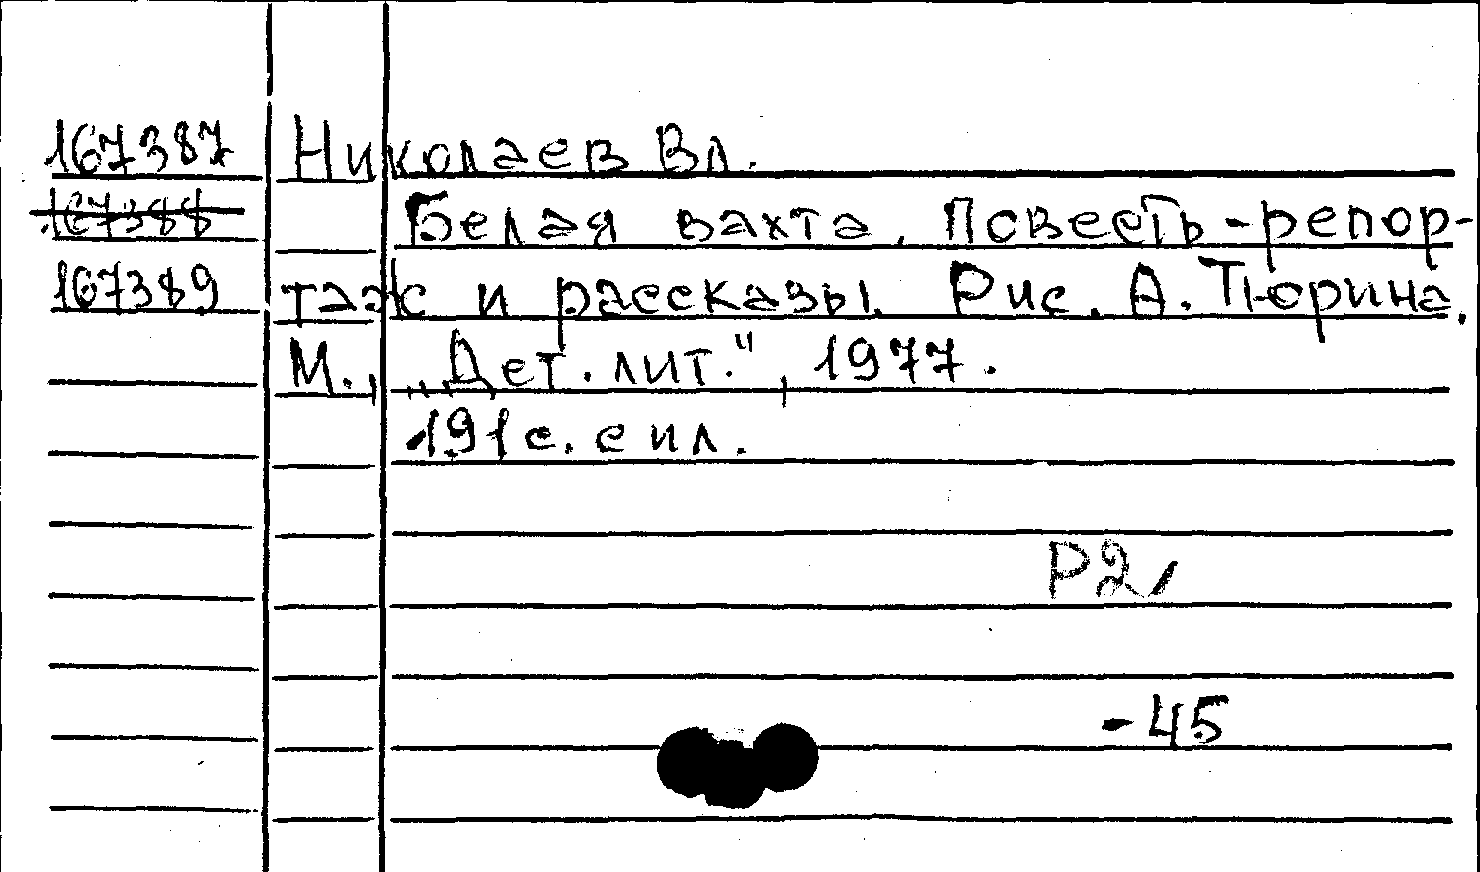 167387 Николаев Вл.
167388 Белая вахта. Повесть-репор-
167389 таж и рассказы. Рис. А. Тюрина.
М., „Дет. лит.", 1977.
191с. с ил.
Р2
-45